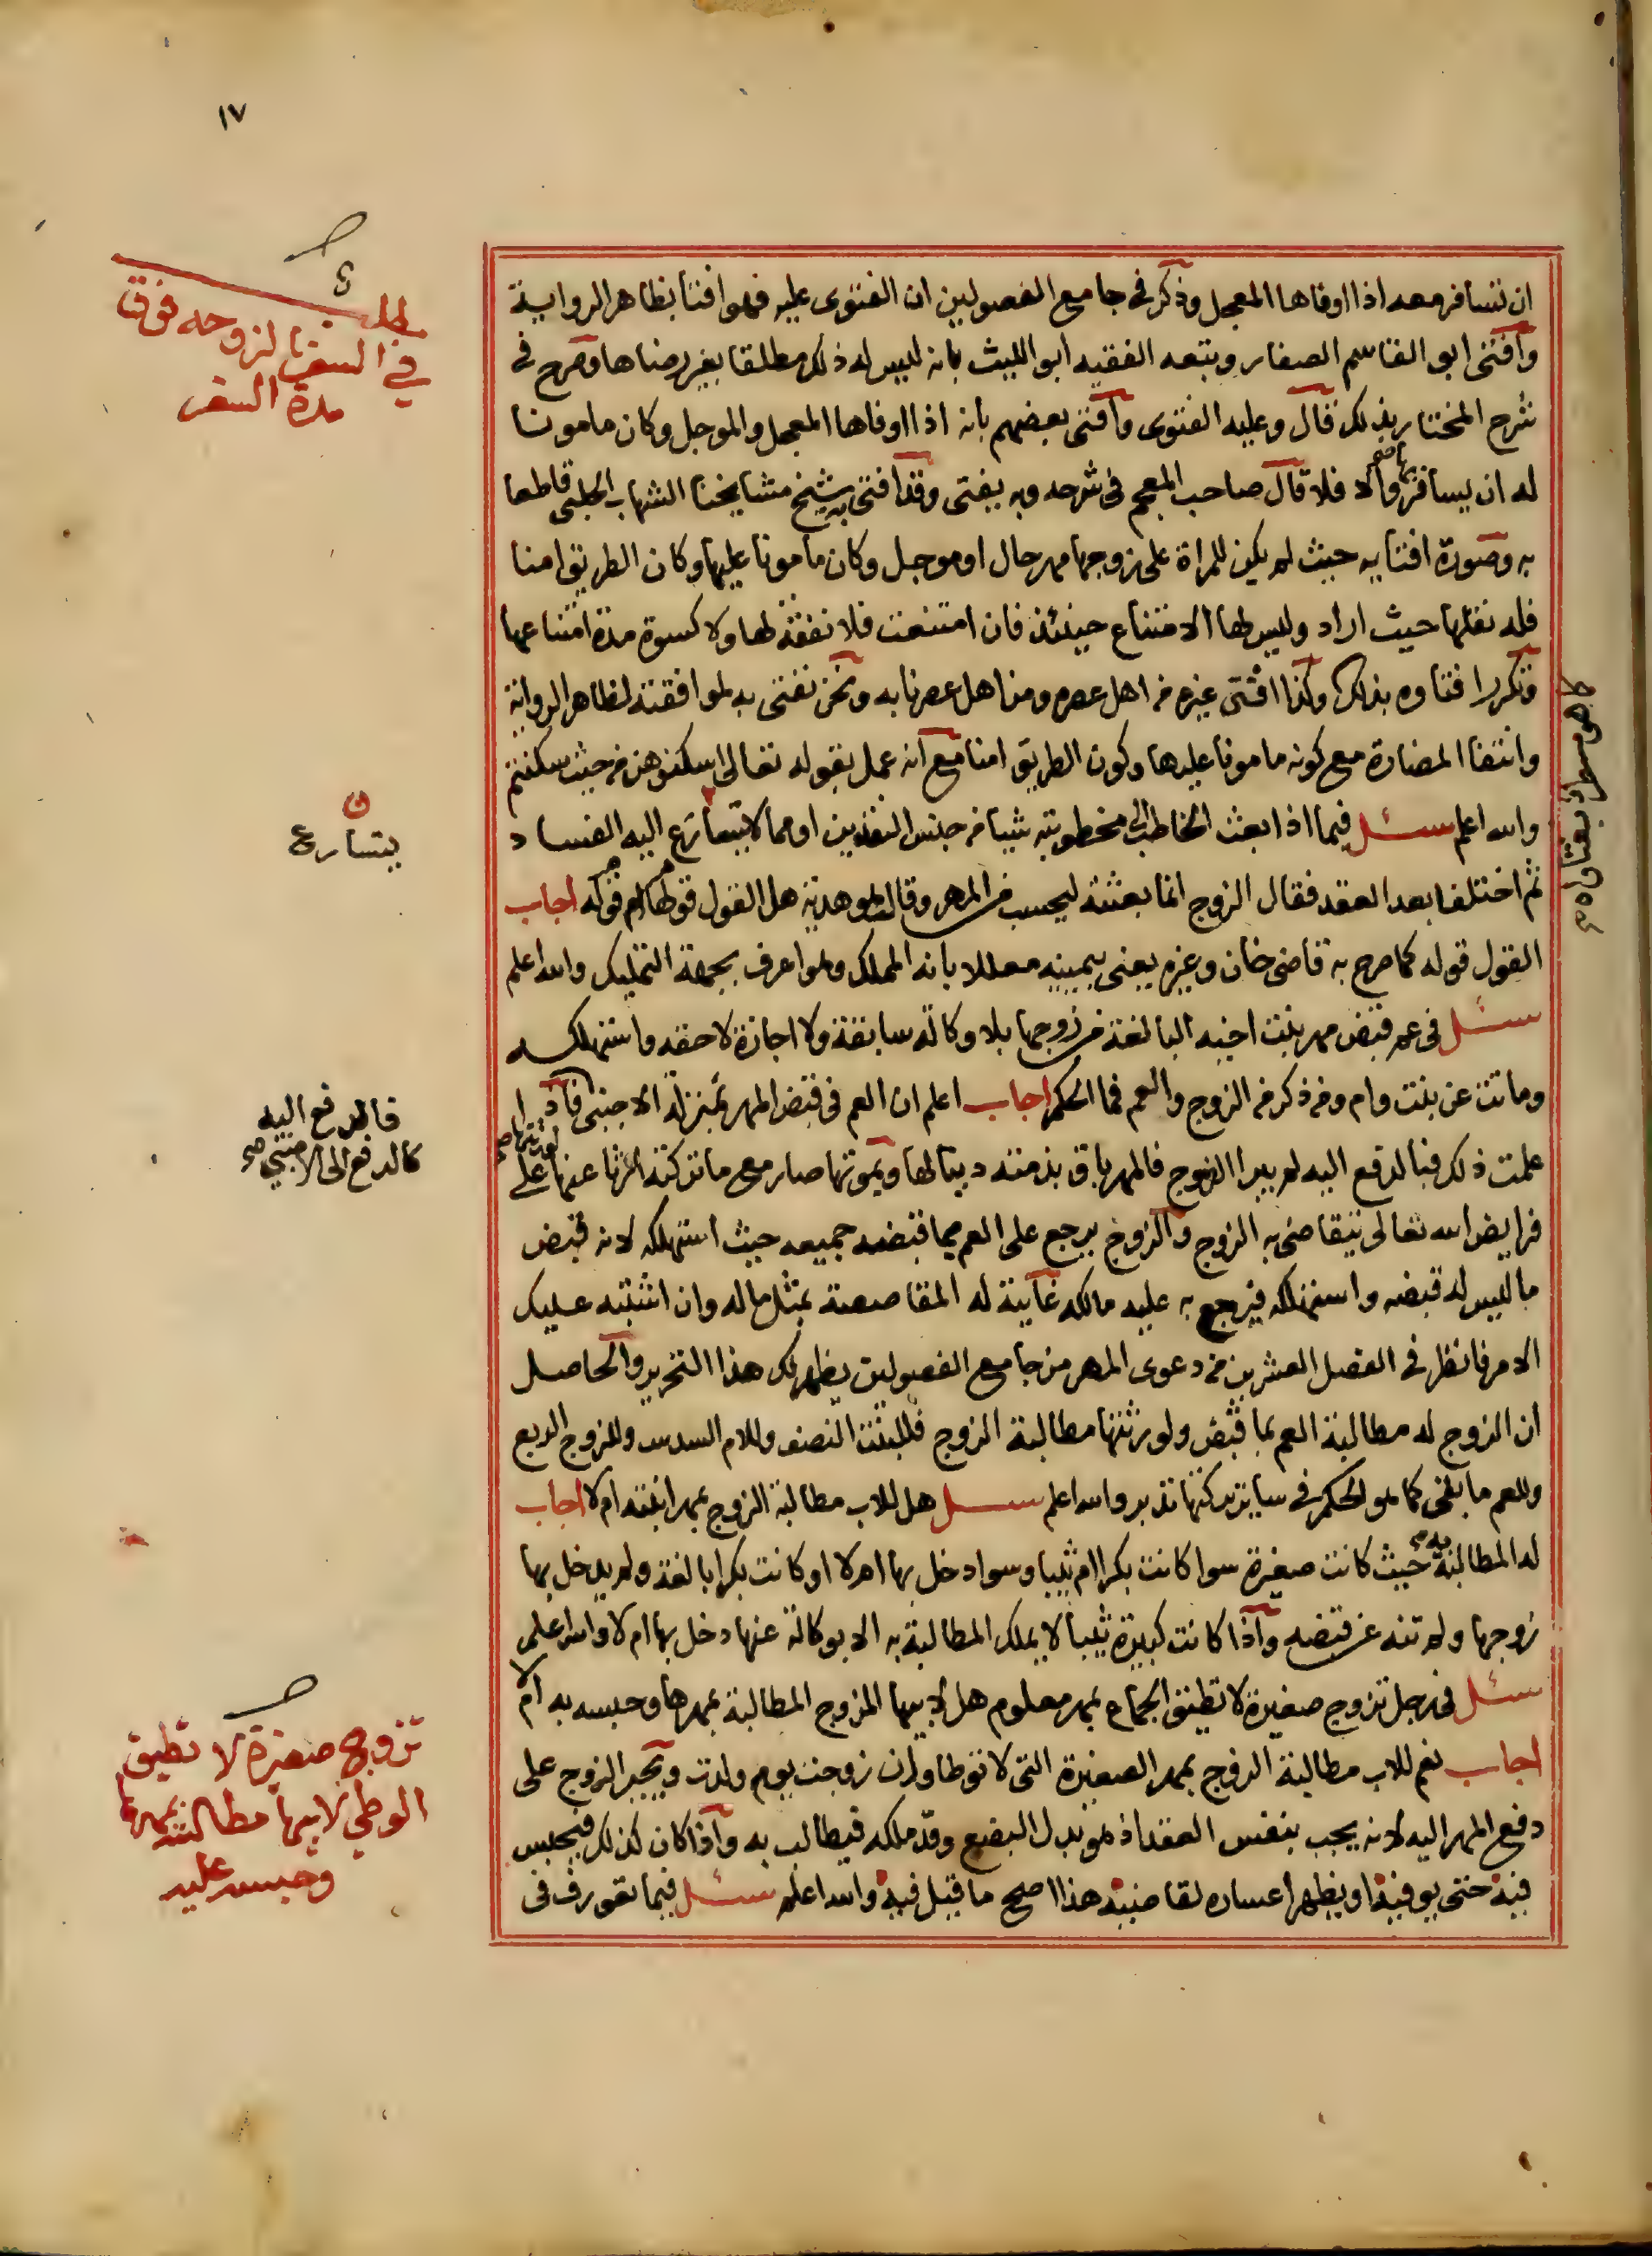 ١٧
ان تسافر معه اذا اوفاها المعجل وذكر في جامع الفصولين ان الفتوى عليه فهو افتا بظاهر الرواية
وافتى ابو القاسم الصفار وتبعه الفقيه ابو الليث بانه ليس له ذلك مطلقا بغير رضاها وصرح في
شرح المختار بذلك قال وعليه الفتوى وافتى بعضهم بانه اذا اوفاها المعجل والموجل وكان مامونا
له ان يسافر بها والا فلا قال صاحب المجمع في شرحه وبه يفتى وقد افتى به شيخ مشايخنا الشهاب الحلبي قاطعا
به وصورة افتايه حيث لم يكن للمراة على زوجها مهر حال او موجل وكان مامونا عليها وكان الطريق امنا
فله نقلها حيث اراد وليس لها الامتناع حينئذ فان امتنعت فلا نفقة لها ولا كسوة مدة امتناعها
وتكرر افتاوه بذلك وكذا افتى غيره من اهل عصره ومن اهل عصرنا به ونحن نفتي به لموافقته لظاهر الرواية
وانتفا المضارة مع كونه مامونا عليها وكون الطريق امنا مع انه عمل بقوله تعالى اسكنوهن من حيث سكنتم
والله اعلم سئل فيما اذا بعث الخاطب الى مخطوبته شيا من جنس النقدين او مما لا يتسارع اليه الفساد
ثم اختلفا بعد العقد فقال الزوج انما بعثته ليحسب من المهر وقالت هو هدية هل القول قولها ام قوله اجاب
القول قوله كما صرح به قاضي خان وغيره يعني بيمينه معللا بانه المملك وهو اعرف بجهة التمليك والله اعلم
سئل في عم قبض مهر بنت اخيه البالغة من زوجها بلا وكالة سابقة ولا اجازة لاحقة واستهلكه
وماتت عن بنت وام ومن ذكر من الزوج والعم فما الحكم اجاب اعلم ان العم في قبض المهر بمنزلة الاجنبي فاذا
علمت ذلك فبالدفع اليه لم يبرا الزوج فالمهر باق بذمته دينا لها وبموتها صار مع ما تركته ارثا عنها لورثتها على
فرايض الله تعالى يتقاضى به الزوج والزوج يرجع على العم بما قبضه جميعه حيث استهلكه لانه قبض
ما ليس له قبضه واستهلكه فيرجع به عليه مالكه غايته له المقاصصة بمثل ماله وان اشتبه عليك
الامر فانظر في الفصل العشرين من دعوى المهر من جامع الفصولين يظهر لك هذا التحرير والحاصل
ان الزوج له مطالبة العم بما قبض ولورثتها مطالبة الزوج فللبنت النصف وللام السدس وللزوج الربع
وللعم ما بقي كما هو الحكم في ساير تركتها تدبر والله اعلم سئل هل للاب مطالبة الزوج بمهر ابنته ام لا اجاب
له المطالبة به حيث كانت صغيرة سوا كانت بكرا ام ثيبا وسوا دخل بها ام لا او كانت بكرا بالغة ولم يدخل بها
زوجها ولم تنه عن قبضه واذا كانت كبيرة ثيبا لا يملك المطالبة به الا بوكالة عنها دخل بها ام لا والله اعلم
سئل في رجل تزوج صغيرة لا تطيق الجماع بمهر معلوم هل لابيها المزوج المطالبة بمهرها وحبسه به ام لا
اجاب نعم للاب مطالبة الزوج بمهر الصغيرة التي لا توطا وان زوجت يوم ولدت ويجبر الزوج على
دفع المهر اليه لانه يجب بنفس العقد اذ هو بدل البضع وقد ملكه فيطالب به واذا كان كذلك فيحبس
فيه حتى يوفيه او يظهر اعساره لقاضيه هذا اصح ما قيل فيه والله اعلم سئل فيما تعورف في
مطلب
في السفر بالزوجه فوق
مدة السفر
ن
يتسارع
فالدفع اليه
كالدفع الى الاجنبي صح
تزوج صغيرة لا تطيق
الوطي لابيها مطالبته بمهرها
وحبسه عليه